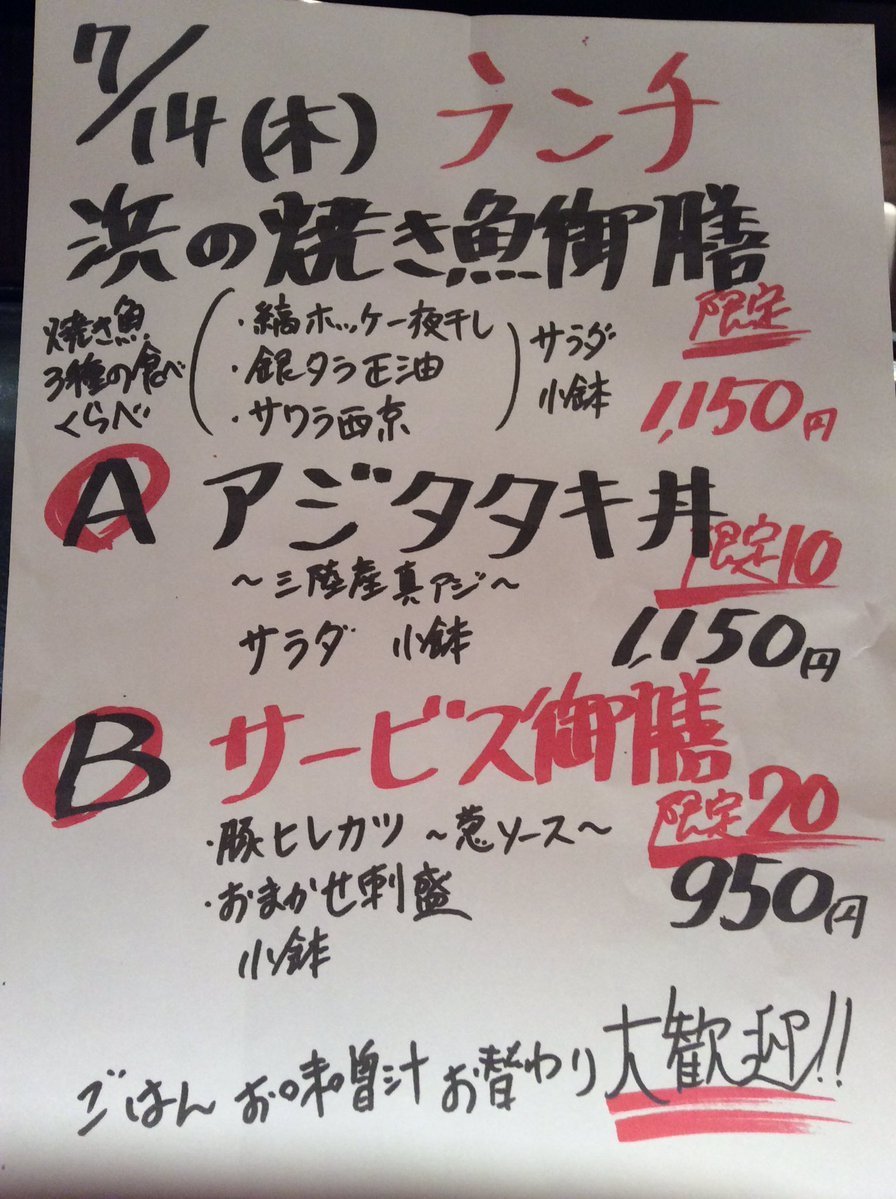 7/14(木) ランチ
浜の焼き魚御膳
限定
焼き魚
3種の食べ
くらべ
・縞ホッケ一夜干し
・銀タラ正油
・サワラ西京
サラダ
小鉢
1,150円
A アジタタキ丼
限定10
〜三陸産真アジ〜
サラダ 小鉢
1,150円
B サービス御膳
限定20
・豚ヒレカツ 〜葱ソース〜
・おまかせ刺盛
小鉢
950円
ごはん お味噌汁 お替わり 大歓迎!!